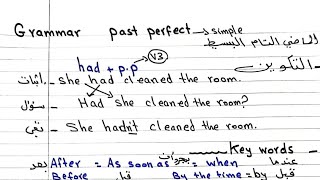 Grammar past perfect → simple
الماضي التام البسيط
had + p.p V3 التكوين
إثبات - She had cleaned the room.
سؤال - Had she cleaned the room?
نفي - She hadn't cleaned the room.
Key words
بعد After = As soon as بمجرد أن = when عندما
Before قبل By the time = by قبل